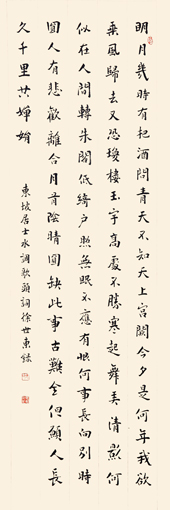 明月幾時有把酒問青天不知天上宮闕今夕是何年我欲
乘風歸去又恐瓊樓玉宇高處不勝寒起舞弄清影何
似在人間轉朱閣低綺户照無眠不應有恨何事長向別時
圓人有悲歡離合月有陰晴圓缺此事古難全但願人長
久千里共嬋娟
東坡居士水調歌頭詞徐世東錄